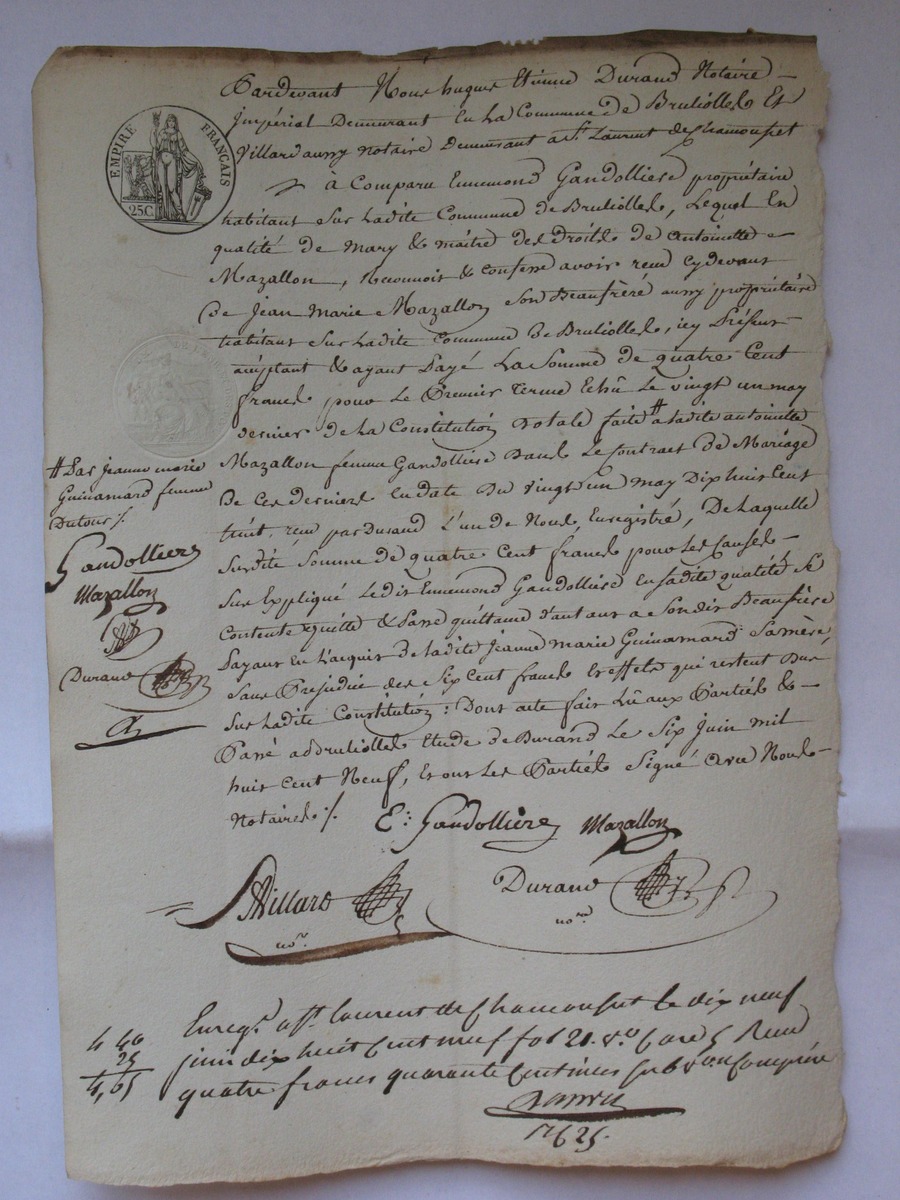 Pardevant Nous hugues Etienne Durand Notaire
Impérial Demeurant En La Commune de Brulioles Et
Villard aussy Notaire Demeurant a St. Laurent de Chamousset
à Comparu Ennemond Gandolliere propriétaire
habitant Sur Ladite Commune de Brulioles, Lequel En
qualité de mary & maitre des Droits de antoinette
Mazallon, reconnoit & confesse avoir reçu cydevant
De Jean Marie Mazallon Son Beaufrère aussy propriétaire
habitant Sur Ladite Commune de Brulioles, icy Présent
acceptant & ayant Payé La Somme de quatre Cent
francs pour Le Premier terme Echû Le vingt un may
dernier de La Constitution Dotale faite # a Ladite antoinette
Mazallon femme Gandolliere Dans Le Contrat de Mariage
De Ces derniers En date Du vingt un may Dix huit Cent
huit, reçu par Durand L'un de Nous, Enregistré, De Laquelle
Susdite Somme de quatre Cent francs pour Les Causes
Sus Expliqué Ledit Ennemond Gandolliere En sadite qualité Se
Contente quitte & Passe quittance d'autant a Son dit Beaufrère
Payant En L'acquit de Ladite Jeanne marie Guinamard Sa mère,
Sans Préjudice des Six Cent francs & effets qui restent Dus
Sur Ladite Constitution : Dont acte fait Lû aux Parties &
Passé a Brulioles Etude de Durand Le Six Juin mil
huit Cent Neuf, Et ont Les Parties Signé avec Nous
Notaires ./.
E: Gandolliere Mazallon
Villard
nore.
Durand
nore.
# Par Jeanne marie
Guinamard femme
Dutour ./.
Gandolliere
Mazallon
Durand
EMPIRE FRANÇAIS
25C.
Enregé. a St. Laurent de Chamousset le dix neuf
juin dix huit Cent neuf fol 21. vo. Care 5 Reçu
quatre francs quarante Centimes
4 40
25
4,65